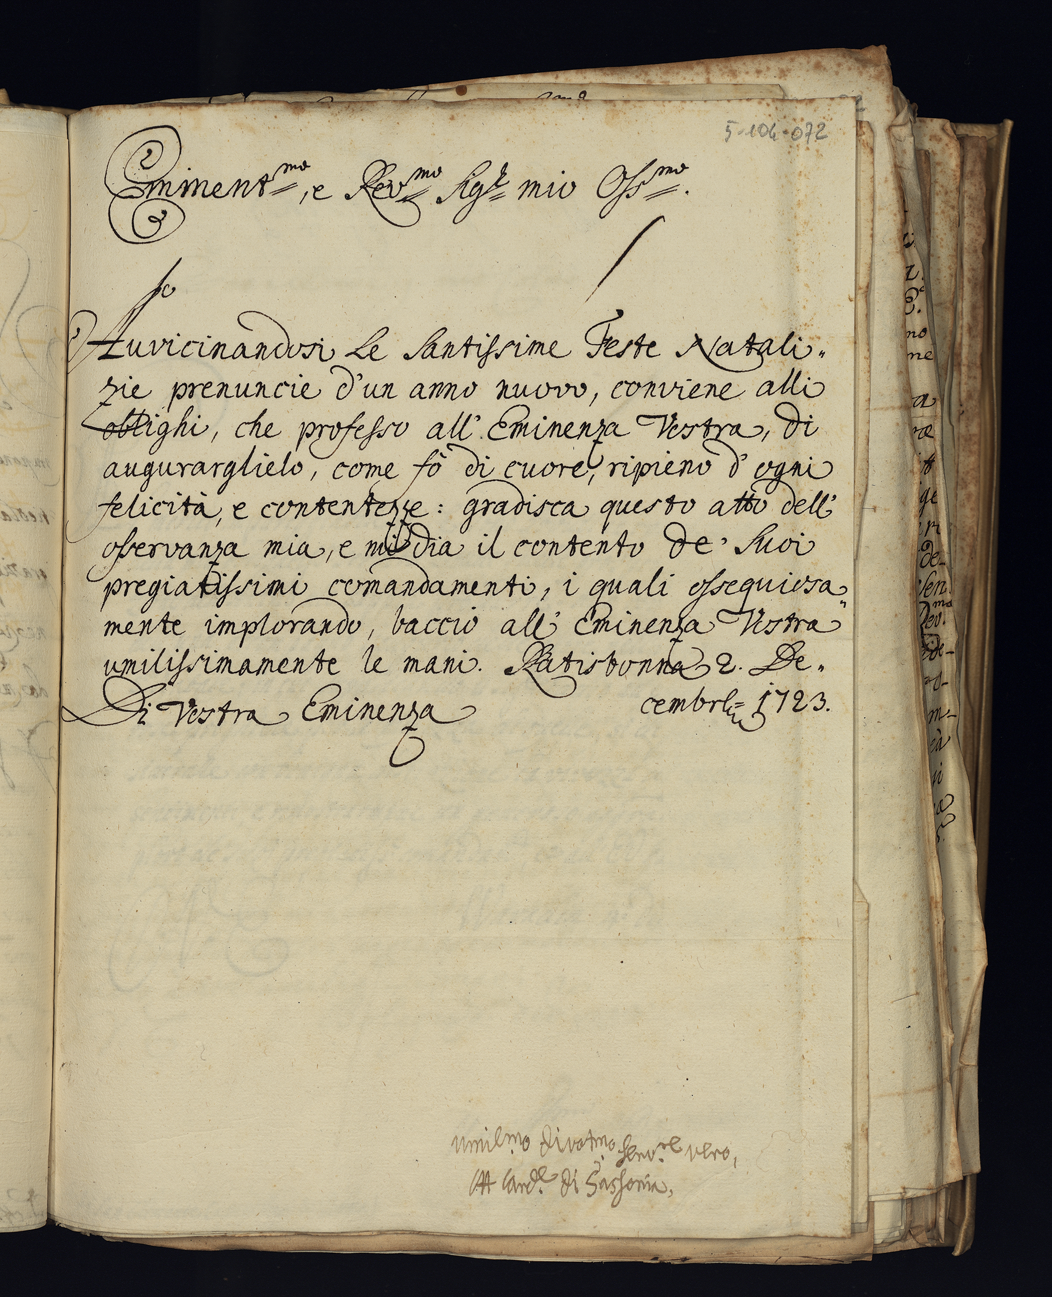 5-104-072
Eminent.mo, e Rev.mo Sig.r mio Oss.mo.
Auuicinandosi le Santissime Feste Natali„
zie prenuncie d'un anno nuovo, conviene alli
oblighi, che professo all' Eminenza Vestra, di
augurarglielo, come fò di cuore, ripieno d' ogni
felicità, e contentezze: gradisca questo atto dell'
osservanza mia, e mi dia il contento de' Suoi
pregiatissimi comandamenti, i quali ossequiosa„
mente implorando, baccio all' Eminenza Vestra
umilissimamente le mani. Ratisbonna 2. De„
Di Vestra Eminenza cembre 1723.
umil.mo divot.mo serv.re vero,
Card.le di Sassonia,